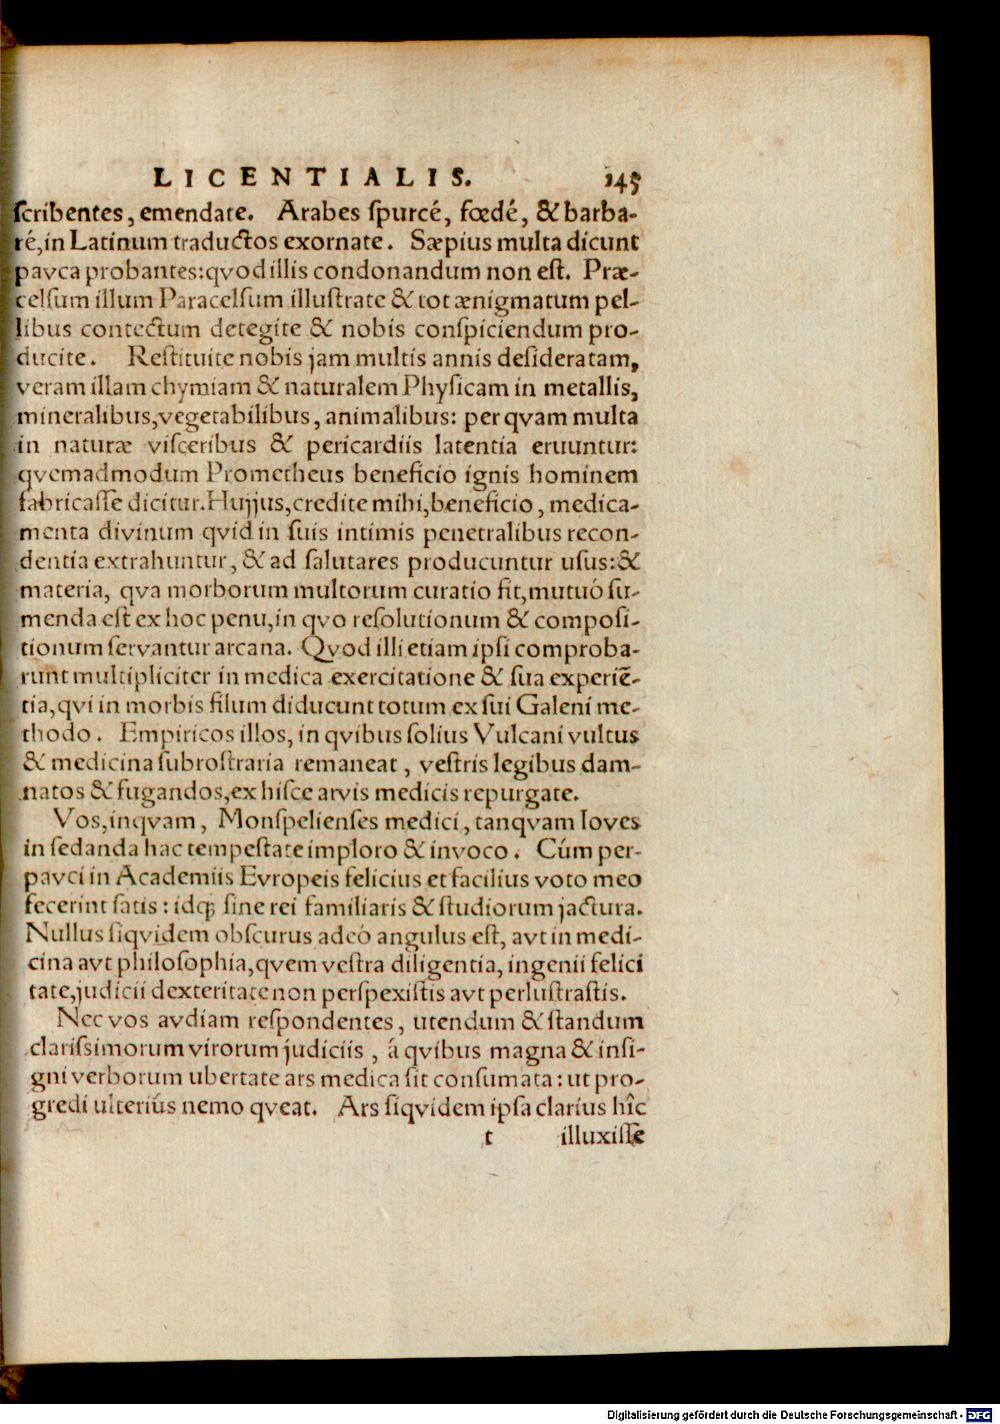 LICENTIALIS. 145
ſcribentes, emendate. Arabes ſpurcé, fœdé, & barba-
ré, in Latinum traductos exornate. Sæpius multa dicunt
pavca probantes: qvod illis condonandum non eſt. Præ-
celſum illum Paracelſum illuſtrate & tot ænigmatum pel-
libus contectum detegite & nobis conſpiciendum pro-
ducite. Reſtituite nobis jam multis annis deſideratam,
veram illam chymiam & naturalem Phyſicam in metallis,
mineralibus, vegetabilibus, animalibus: per qvam multa
in naturæ viſceribus & pericardiis latentia eruuntur:
qvemadmodum Prometheus beneficio ignis hominem
fabricaſſe dicitur. Hujjus, credite mihi, beneficio, medica-
menta divinum qvid in ſuis intimis penetralibus recon-
dentia extrahuntur, & ad ſalutares producuntur uſus: &
materia, qva morborum multorum curatio fit, mutuó ſu-
menda eſt ex hoc penu, in qvo reſolutionum & compoſi-
tionum ſervantur arcana. Qvod illi etiam ipſi comproba-
runt multipliciter in medica exercitatione & ſua experiẽ-
tia, qvi in morbis filum diducunt totum ex ſui Galeni me-
thodo. Empiricos illos, in qvibus ſolius Vulcani vultus
& medicina ſubroſtraria remaneat, veſtris legibus dam-
natos & fugandos, ex hiſce arvis medicis repurgate.
Vos, inqvam, Monſpelienſes medici, tanqvam Ioves
in ſedanda hac tempeſtate imploro & invoco. Cúm per-
pavci in Academiis Evropeis felicius et facilius voto meo
fecerint ſatis: idq; ſine rei familiaris & ſtudiorum jactura.
Nullus ſiqvidem obſcurus adeó angulus eſt, avt in medi-
cina avt philoſophia, qvem veſtra diligentia, ingenii felici
tate, judicii dexteritate non perſpexiſtis avt perluſtraſtis.
Nec vos avdiam reſpondentes, utendum & ſtandum
clariſſimorum virorum judiciis, á qvibus magna & inſi-
gni verborum ubertate ars medica ſit conſumata: ut pro-
gredi ulteriús nemo qveat. Ars ſiqvidem ipſa clarius hîc
t illuxiſſe
Digitalisierung gefördert durch die Deutsche Forschungsgemeinschaft - DFG